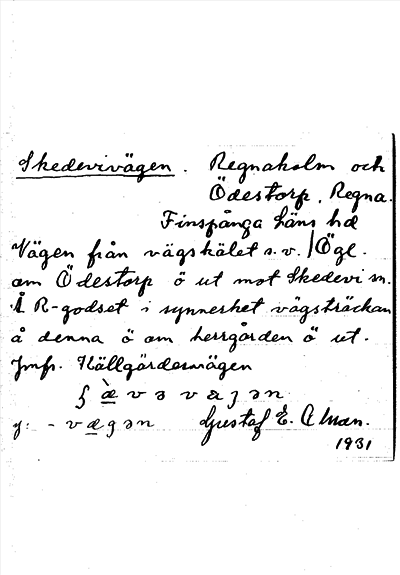 Skedevivägen. Regnaholm och
Ödestorp, Regna.
Finspånga läns hd
Vägen från vägskälet s.v. / Ögl.
om Ödestorp ö ut mot Skedevi sn.
Å R-godset i synnerhet vägsträckan
å denna ö om herrgården ö ut.
Jmfr. Källgärdesvägen
y: - Gustaf E. Alman.
1931